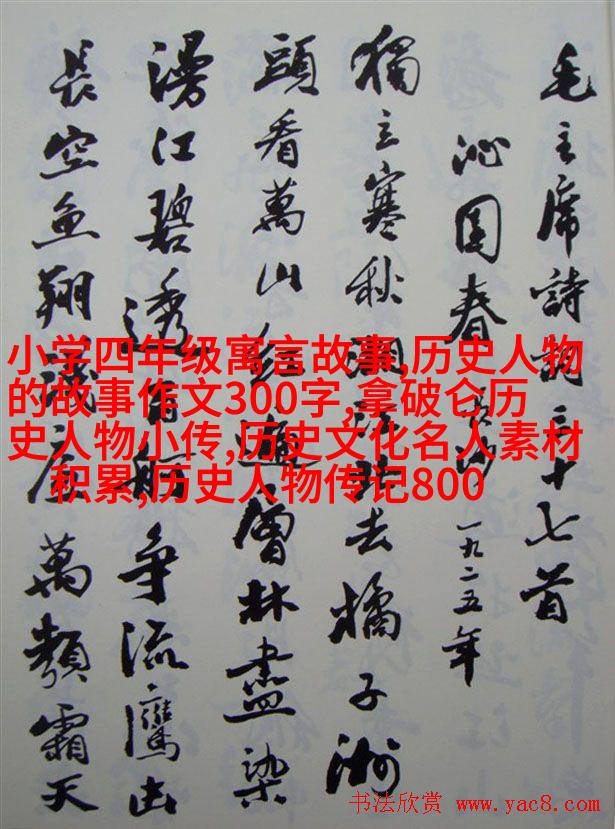 毛主席詩詞三十七首
沁園春 長沙 一九二五年
獨立寒秋湘江北去橘子洲
頭看萬山红遍層林盡染
漫江碧透百舸争流鷹击
長空魚翔淺底萬類霜天
小学四年级寓言故事,历史人物
的故事作文300字,拿破仑历
史人物小传,历史文化名人素材
积累,历史人物传记800
书法欣赏 www.yac8.com